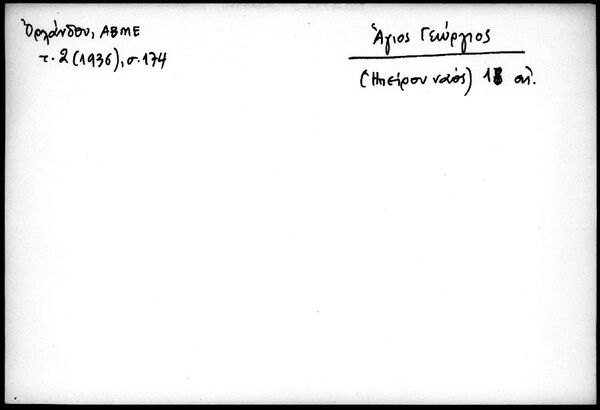 Ὀρλάνδου, ΑΒΜΕ
τ. 2 (1936), σ. 174
Ἅγιος Γεώργιος
(Ἠπείρου ναός) 18 αἰ.